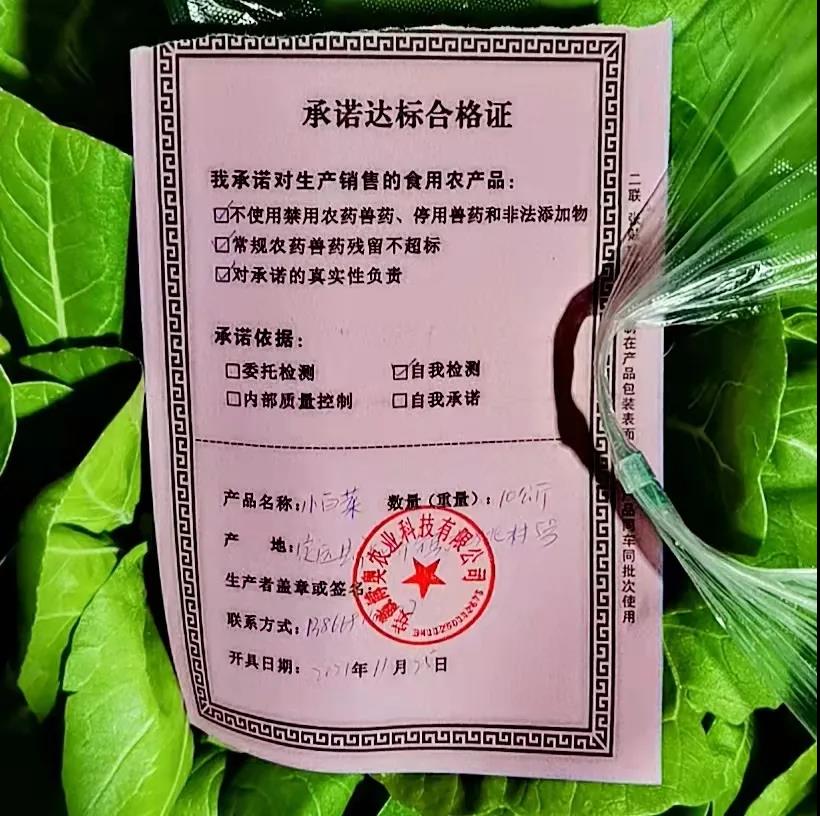 承诺达标合格证
我承诺对生产销售的食用农产品:
☑不使用禁用农药兽药、停用兽药和非法添加物
☑常规农药兽药残留不超标
☑对承诺的真实性负责
承诺依据:
☐委托检测 ☑自我检测
☐内部质量控制 ☐自我承诺
产品名称:小白菜 数量(重量):10公斤
产 地:定远县
生产者盖章或签名
联系方式:
开具日期: 年11月 日
农业科技有限公司
二联
在产品包装表面
同批次使用